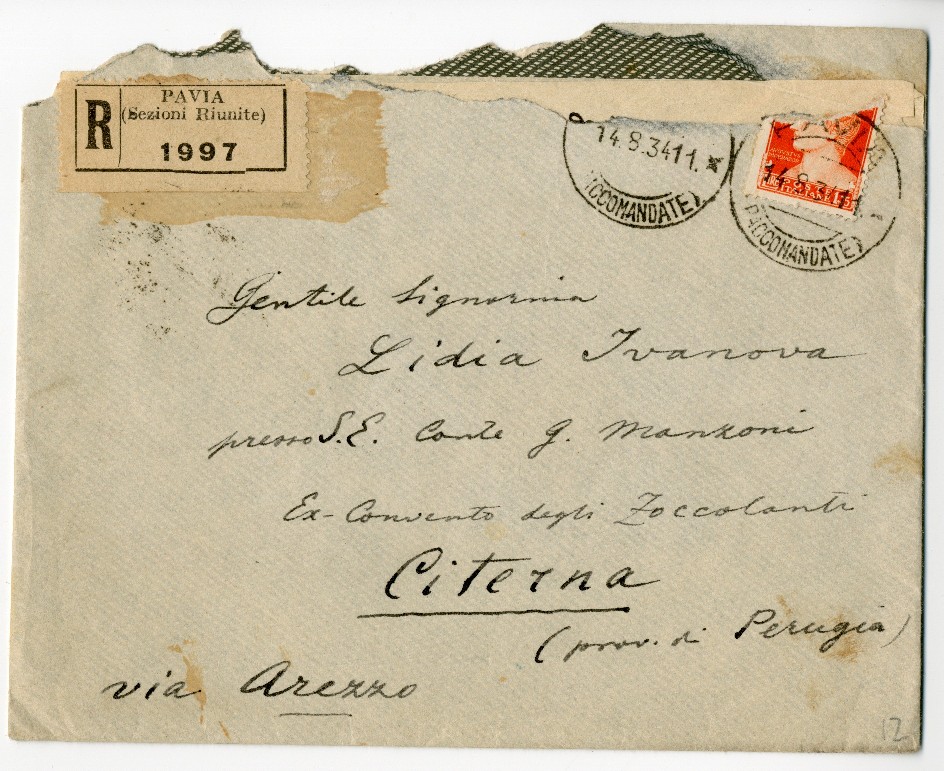 PAVIA
R (Sezioni Riunite)
1997
14.8.34 11.
(RACCOMANDATE)
14.8.34 11.
(RACCOMANDATE)
Gentile Signorina
Lidia Ivanova
presso S.E. Conte G. Manzoni
Ex-Convento degli Zoccolanti
Citerna
(prov. di Perugia)
via Arezzo
12